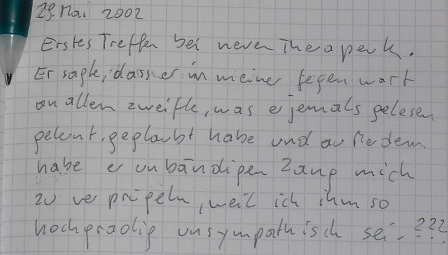 29. Mai 2002
Erstes Treffen bei neuen Therapeut.
Er sagte, dass er in meiner Gegenwart
an allen zweifle, was er jemals gelesen
gelernt, geglaubt habe und außerdem
habe er unbändigen Zang mich
zu verprügeln, weil ich ihm so
hochgradig unsympathisch sei. ???